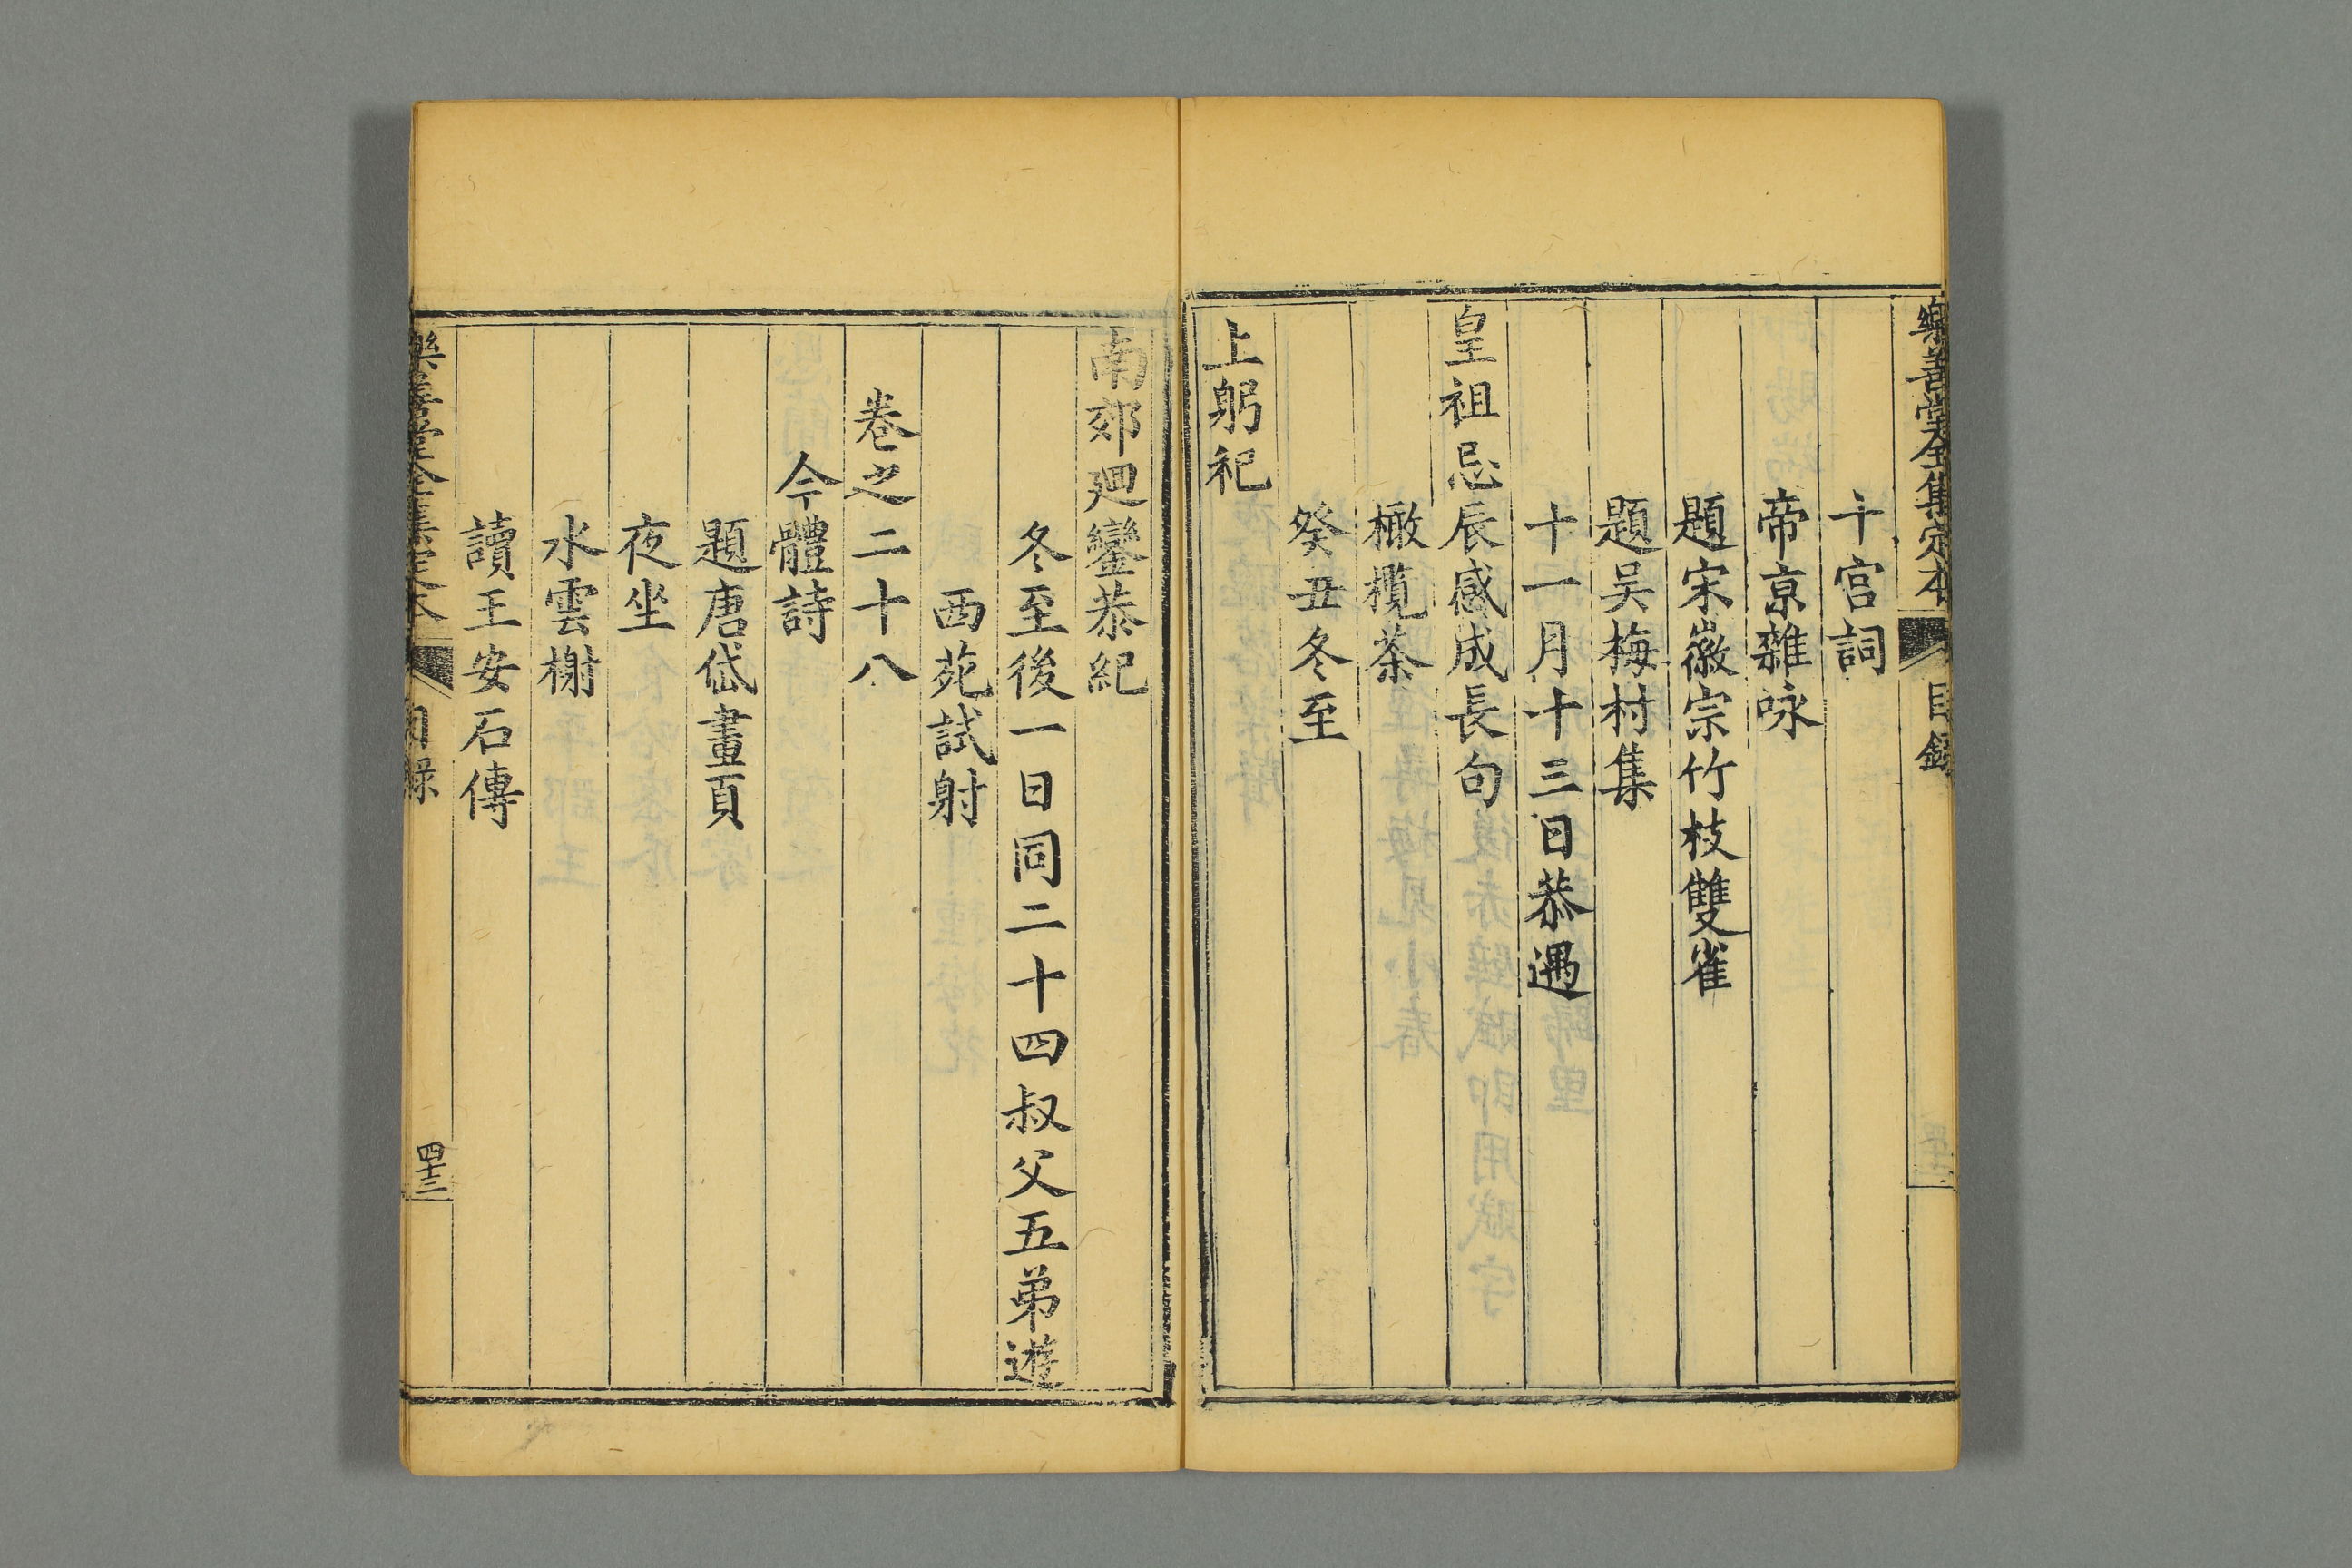 樂善堂全集定本 目錄
十宮詞
帝京雜咏
題宋徽宗竹枝雙雀
題吳梅村集
十一月十三日恭遇
皇祖忌辰感成長句
橄欖茶
癸丑冬至
上躬祀
南郊廻鑾恭紀
冬至後一日同二十四叔父五弟遊
西苑試射
卷之二十八
今體詩
題唐岱畫頁
夜坐
水雲榭
讀王安石傳
樂善堂全集定本 目錄 四十三